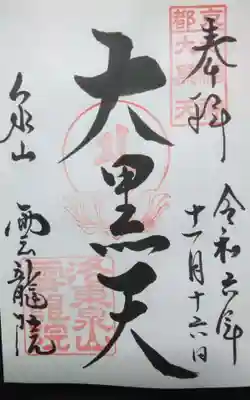 奉拝
令和六年
十一月十六日
大黒天
泉山
雲龍院
洛東泉山
雲龍院